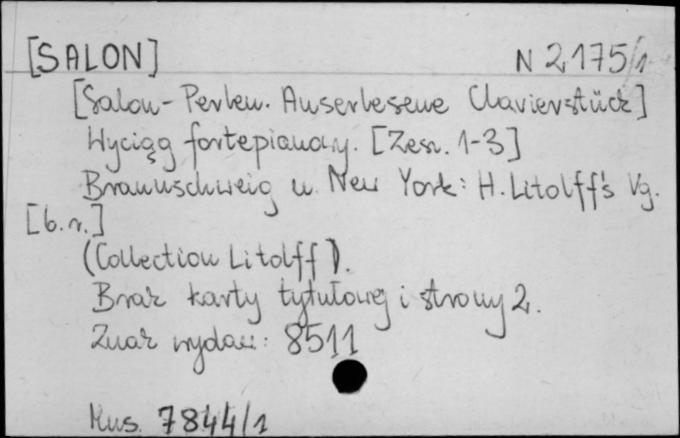 [SALON] N 2175/1
[Salon-Perlen. Auserlesene Clavierstück]
Wyciąg fortepianowy. [Zesz. 1-3]
Braunschweig u. New York: H. Litolff's Vg.
[b.r.]
(Collection Litolff).
Brak karty tytułowej i strony 2.
Znak wydaw: 8511
Mus. 7844/1